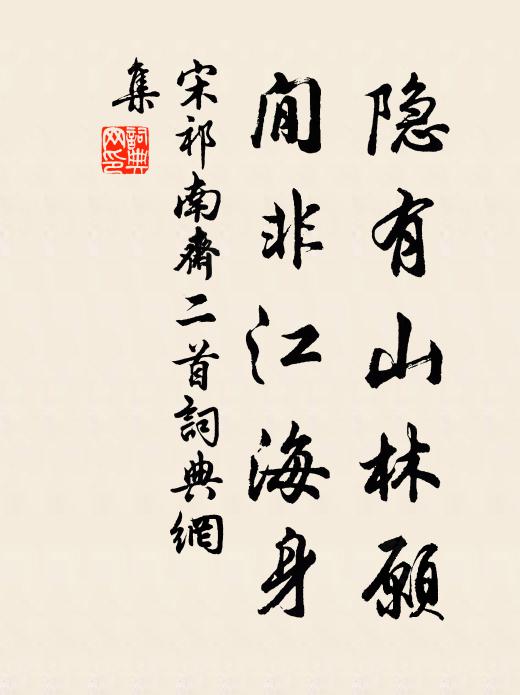 隐有山林願
閒非江海身
宋祁南齋二首詞典網
集
詞典網印